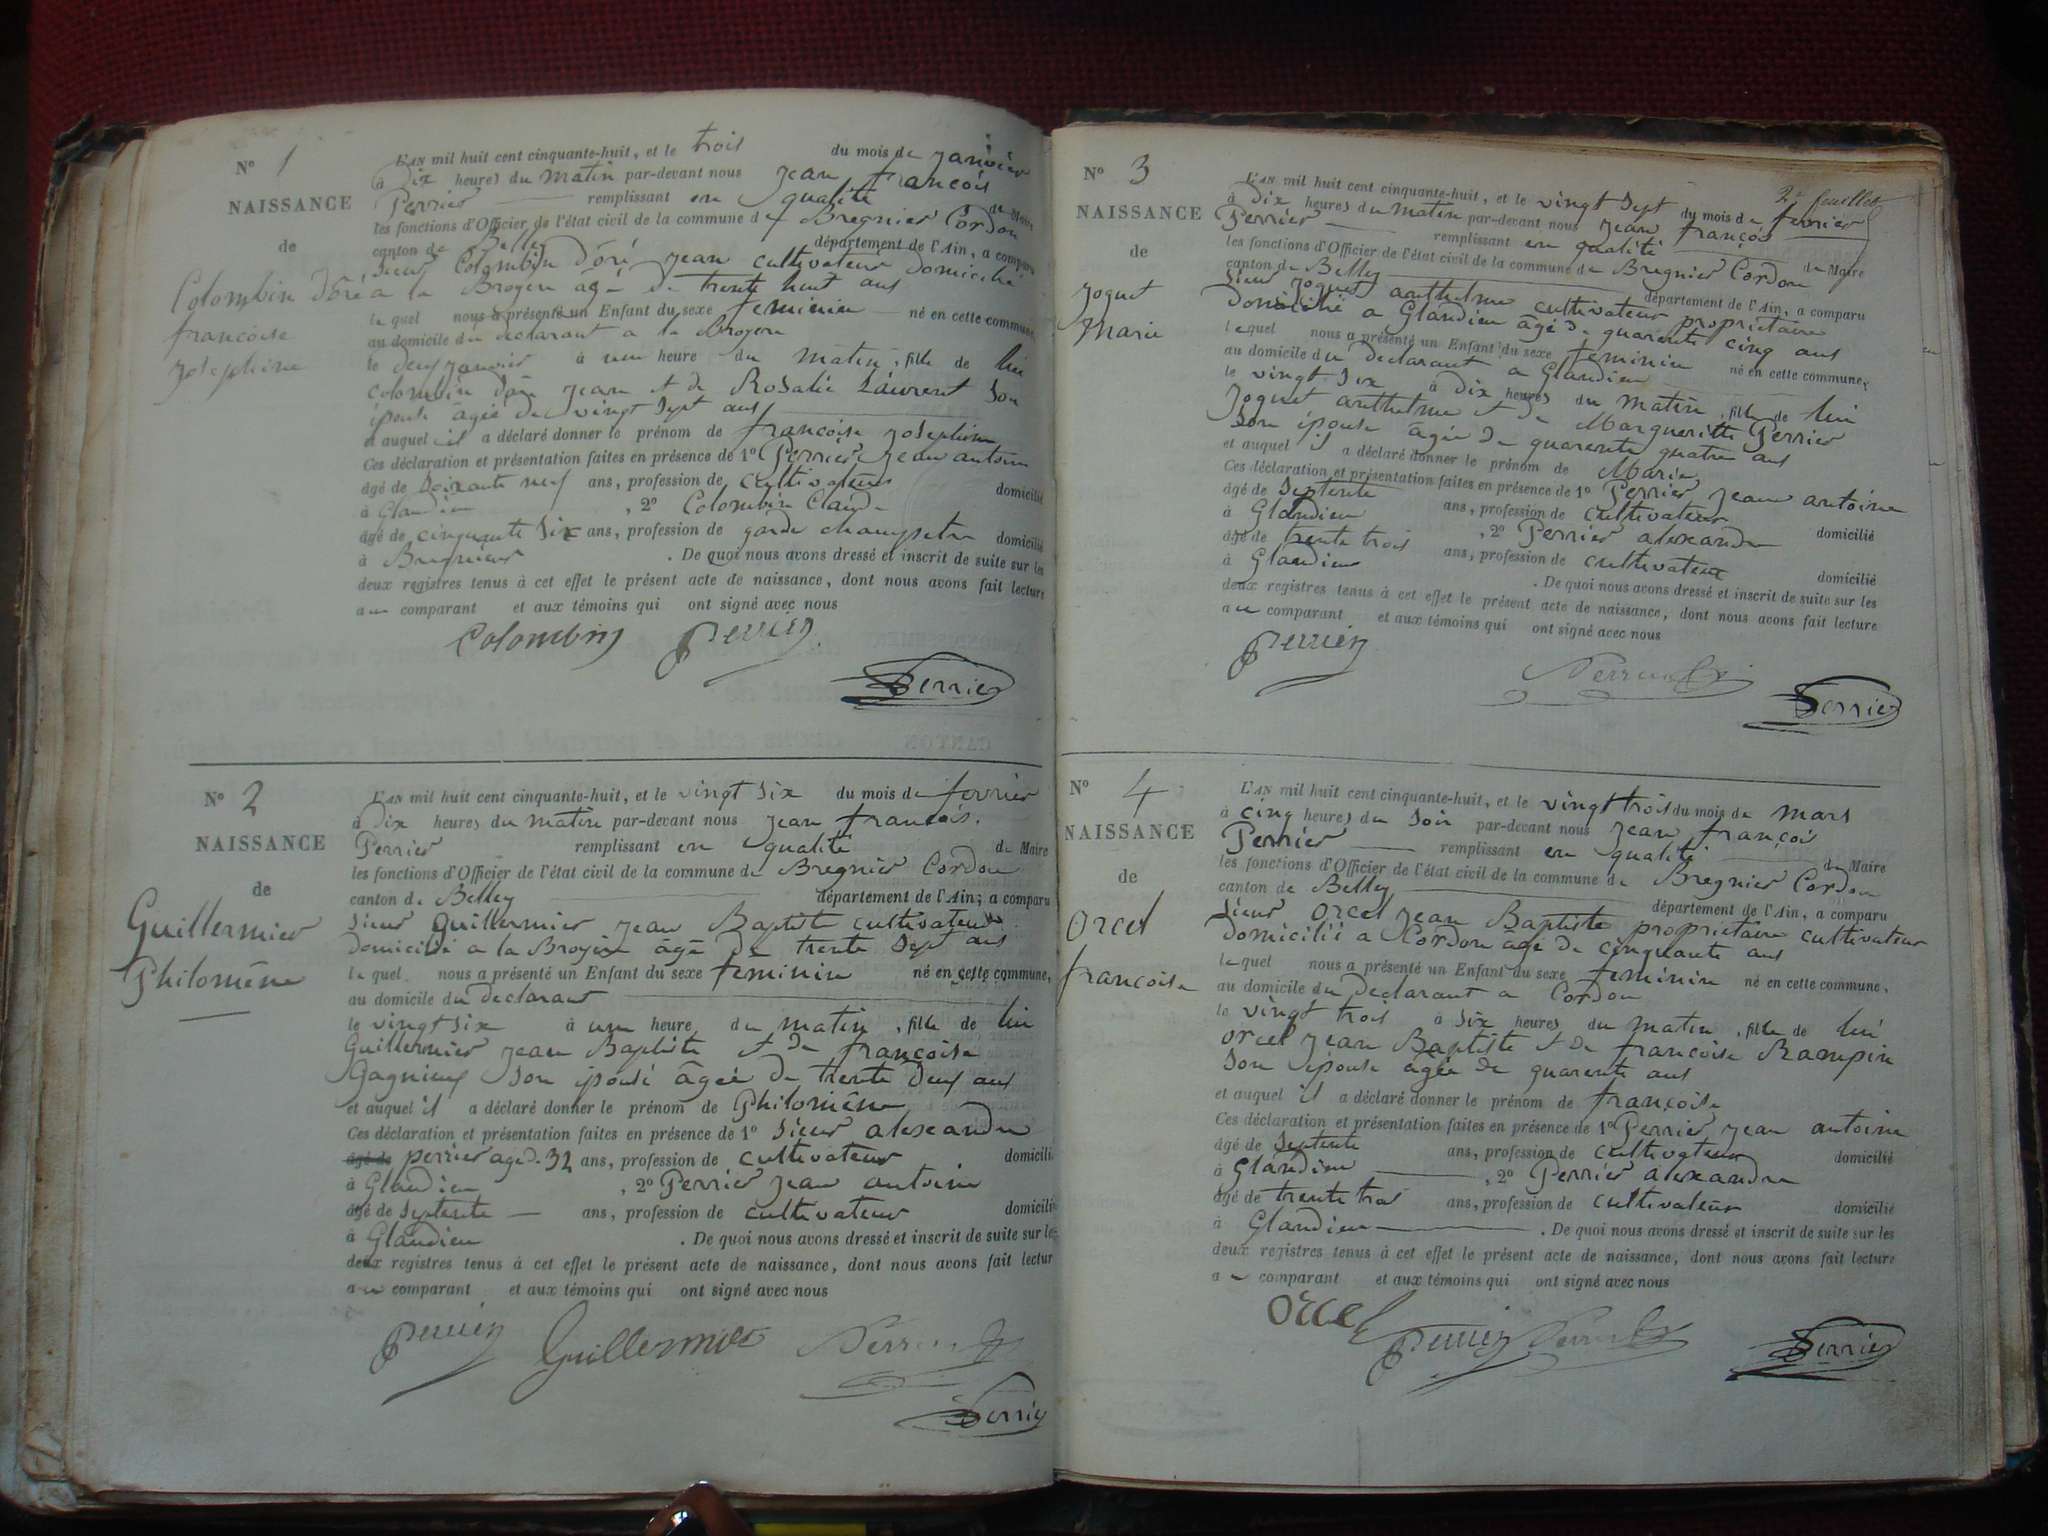 N° 1
NAISSANCE
de
Colombin Dôré
francoise
Josephine
L'AN mil huit cent cinquante-huit, et le trois du mois de Janvier
à Dix heures du matin par-devant nous Jean françois
Perrier remplissant en qualité de Maire
les fonctions d'Officier de l'état civil de la commune de Bregnier Cordon
canton de Belley département de l'Ain, a comparu
Sieur Colombin Dôré Jean cultivateur domicilié
a la Broyere agé de trente huit ans
lequel nous a présenté un Enfant du sexe feminin né en cette commune
au domicile du declarant a la Broyere
le deux Janvier à une heure du matin, fille de lui
Colombin Dôré Jean et de Rosalie Laurent Son
épouse âgée de vingt Sept ans
et auquel il a déclaré donner le prénom de francoise Josephine
Ces déclaration et présentation faites en présence de 1° Perrier Jean antoine
âgé de Soixante neuf ans, profession de cultivateur domicilié
à Glandieu, 2° Colombin Claude
âgé de cinquante Six ans, profession de garde champetre domicilié
à Bregnier. De quoi nous avons dressé et inscrit de suite sur les
deux registres tenus à cet effet le présent acte de naissance, dont nous avons fait lecture
au comparant et aux témoins qui ont signé avec nous
Colombin Perrier
Perrier
N° 2
NAISSANCE
de
Guillermier
Philomène
L'AN mil huit cent cinquante-huit, et le vingt Six du mois de fevrier
à Dix heures du matin par-devant nous Jean francois
Perrier remplissant en qualité de Maire
les fonctions d'Officier de l'état civil de la commune de Bregnier Cordon
canton de Belley département de l'Ain, a comparu
Sieur Guillermier Jean Baptiste cultivateur
Domicilié a la Broyère âgé de trente Sept ans
lequel nous a présenté un Enfant du sexe feminin né en cette commune,
au domicile du declarant
le vingt Six à une heure du matin, fille de lui
Guillermier Jean Baptiste et de françoise
Gagnieux Son épouse âgée de trente Deux ans
et auquel il a déclaré donner le prénom de Philomène
Ces déclaration et présentation faites en présence de 1° Sieur alexandre
âgé de perrier agé de 32 ans, profession de cultivateur domicilié
à Glandieu, 2° Perrier Jean antoine
âgé de Septente ans, profession de cultivateur domicilié
à Glandieu. De quoi nous avons dressé et inscrit de suite sur les
deux registres tenus à cet effet le présent acte de naissance, dont nous avons fait lecture
au comparant et aux témoins qui ont signé avec nous
Perrier Guillermier
Perrier
2e feuillet
N° 3
NAISSANCE
de
Joguet
Marie
L'AN mil huit cent cinquante-huit, et le vingt Sept du mois de fevrier
à Dix heures du matin par-devant nous Jean françois
Perrier remplissant en qualité de Maire
les fonctions d'Officier de l'état civil de la commune de Bregnier Cordon
canton de Belley département de l'Ain, a comparu
Sieur Joguet anthelme cultivateur proprietaire
Domicilié a Glandieu âgé de quarente cinq ans
lequel nous a présenté un Enfant du sexe feminin né en cette commune,
au domicile du declarant a Glandieu
le vingt Six à dix heures du matin, fille de lui
Joguet anthelme et de Margueritte Perrier
Son épouse âgée de quarente quatre ans
et auquel il a déclaré donner le prénom de Marie
Ces déclaration et présentation faites en présence de 1° Perrier Jean antoine
âgé de Septente ans, profession de cultivateur domicilié
à Glandieu, 2° Perrier alexandre
âgé de trente trois ans, profession de cultivateur domicilié
à Glandieu. De quoi nous avons dressé et inscrit de suite sur les
deux registres tenus à cet effet le présent acte de naissance, dont nous avons fait lecture
au comparant et aux témoins qui ont signé avec nous
Perrier
Perrier
N° 4
NAISSANCE
de
Orcel
francoise
L'AN mil huit cent cinquante-huit, et le vingt trois du mois de mars
à cinq heures du Soir par-devant nous Jean françois
Perrier remplissant en qualité de Maire
les fonctions d'Officier de l'état civil de la commune de Bregnier Cordon
canton de Belley département de l'Ain, a comparu
Sieur Orcel Jean Baptiste proprietaire cultivateur
Domicilié a Cordon âgé de cinquante ans
lequel nous a présenté un Enfant du sexe feminin né en cette commune,
au domicile du declarant a Cordon
le vingt trois à Six heures du matin, fille de lui
Orcel Jean Baptiste et de francoise Rampin
Son épouse âgée de quarente ans
et auquel il a déclaré donner le prénom de françoise
Ces déclaration et présentation faites en présence de 1° Perrier Jean antoine
âgé de Septente ans, profession de cultivateur domicilié
à Glandieu, 2° Perrier alexandre
âgé de trente trois ans, profession de cultivateur domicilié
à Glandieu. De quoi nous avons dressé et inscrit de suite sur les
deux registres tenus à cet effet le présent acte de naissance, dont nous avons fait lecture
au comparant et aux témoins qui ont signé avec nous
Orcel
Perrier
Perrier